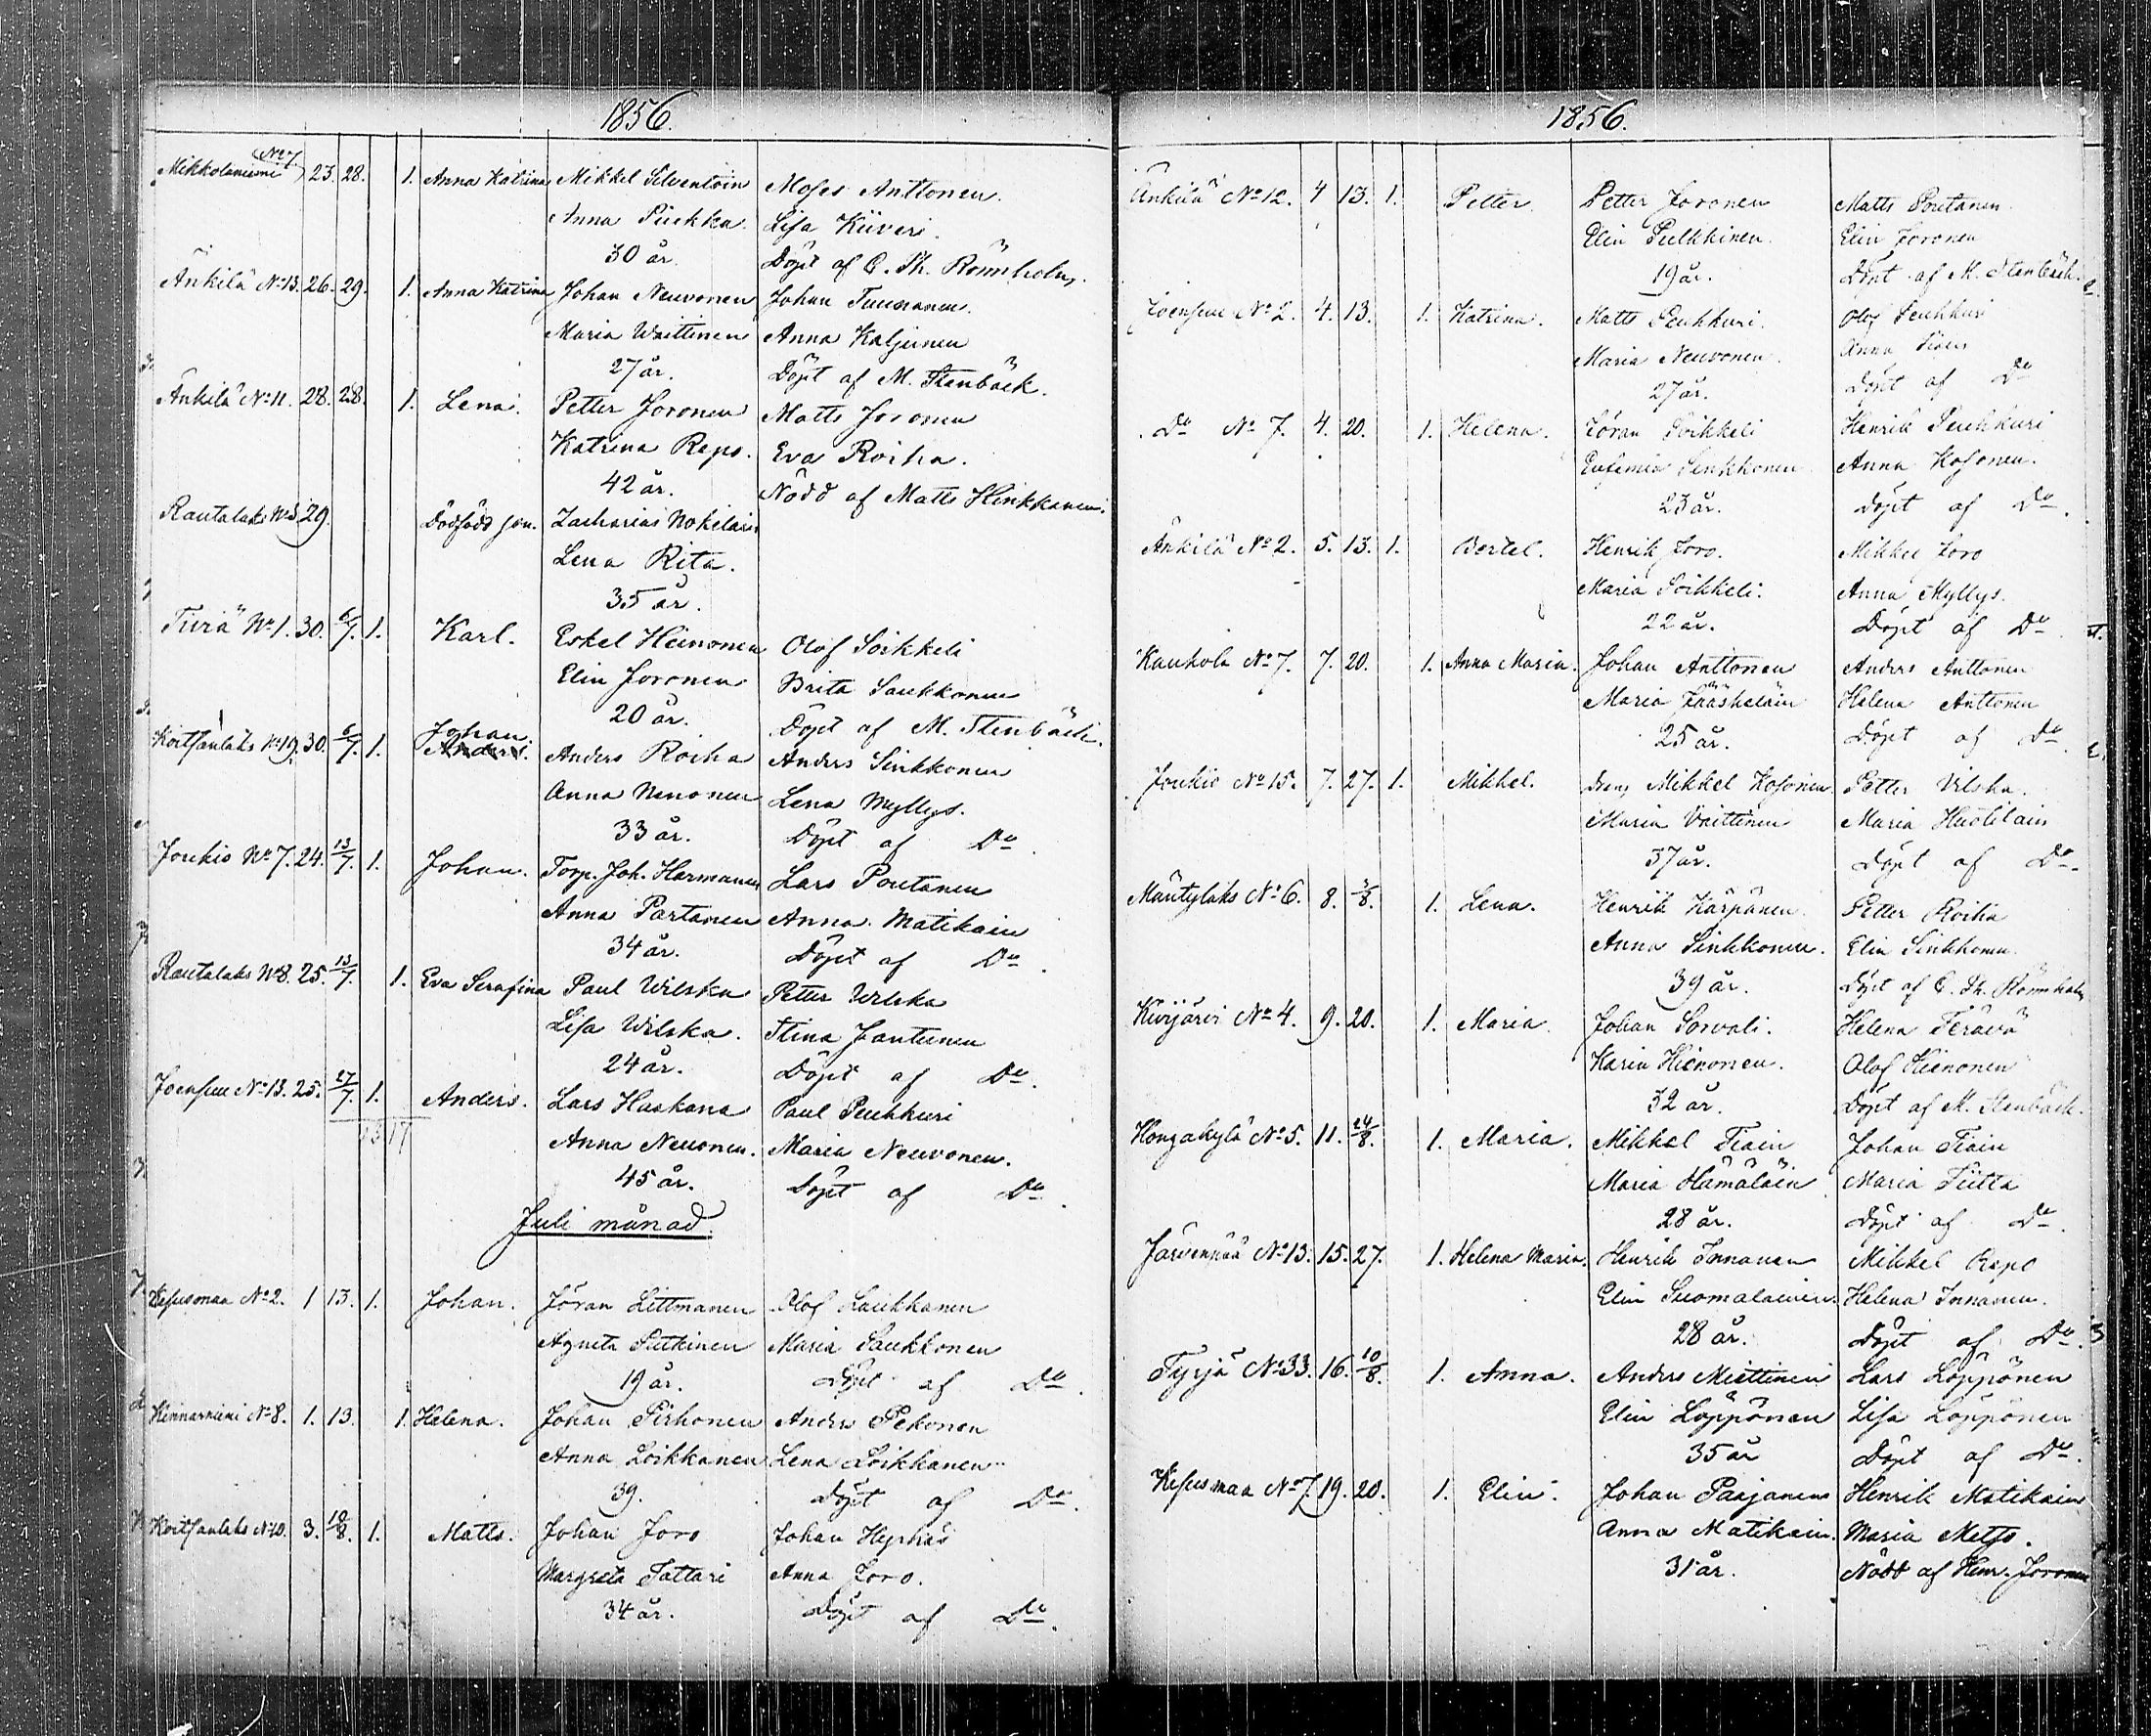 1856.
Mikkolaniemi No 7 23. 28. 1. Anna Katrina Mikkel Silventoin Moses Anttonen.
Anna Puekka. Lisa Kiiveri.
30 år. Döpt af C. Th. Rönnholm.
Änkilä No 13. 26. 29. 1. Anna Katrina Johan Neuvonen Johan Tuunanen.
Maria Waittinen Anna Kaljunen
27 år. Döpt af M. Stenbäck.
Änkilä No 11. 28. 28. 1. Lena. Petter Joronen Matts Joronen
Katrina Repo. Eva Roiha.
42 år. Nödd af Matts Hinkkanen.
Rautalaks No 3. 29. Dödfödd son. Zacharias Nokelain
Lena Rita.
35 år.
Tiviä No 1. 30. 6/7. 1. Karl. Eskel Heinonen Olof Soikkeli
Elin Joronen Brita Saukkonen
20 år. Döpt af M. Stenbäck.
Kortesanlaks No 19. 30. 6/7. 1. Johan. Anders. Anders Roiha Anders Sinkkonen
Anna Nenonen Lena Myllys.
33 år. Döpt af Do
Joukio No 7. 24. 13/7. 1. Johan. Torp. Joh. Harmanen Lars Poutanen
Anna Partanen Anna Matikain
34 år. Döpt af Do
Rautalaks No 8. 25. 13/7. 1. Eva Serafina Paul Wilska Petter Wilska
Lisa Wilska. Stina Jantunen
24 år. Döpt af Do.
Joensuu No 13. 25. 27/7. 1. Anders. Lars Haskana Paul Peuhkuri
13 17
Anna Neuonen. Maria Neuvonen.
45 år. Döpt af Do
Juli månad.
Kesusmaa No 2. 1 13. 1. Johan. Jöran Littmanen Olof Laukkanen
Agneta Putkinen Maria Saukkonen
19 år. Döpt af Do
Kinnarniemi No 8. 1. 13. 1. Helena. Johan Pirhonen Anders Pekonen
Anna Loikkanen Lena Loikkanen
39. Döpt af Do.
Kortesanlaks No 10. 3. 10/8. 1. Matts. Johan Joro Johan Hyrhäs
Margreta Tattari Anna Joro.
34 år. Döpt af Do.
1856.
Änkilä No 12. 4 13. 1. Petter. Petter Joronen Matts Poutanen
Elin Pulkkinen. Elin Joronen
19 år. Döpt af M. Stenbäck.
Joensuu No 2. 4. 13. 1. Katrina. Matts Peuhkuri. Olof Peuhkuri
Maria Neuvonen. Anna
27 år. Döpt af Do
Do No 7. 4. 20. 1. Helena. Jöran Soikkeli Henrik Peuhkuri
Eufemia Sinkkonen Anna Kosonen.
23 år. Döpt af Do.
Änkilä No 2. 5. 13. 1. Bertel. Henrik Joro. Mikkel Joro
Maria Soikkeli. Anna Myllys.
22 år. Döpt af Do
Kankola No 7. 7. 20. 1. Anna Maria. Johan Anttonen Anders Anttonen
Maria Jääskeläin Helena Anttonen
25 år. Döpt af Do
Joukio No 15. 7. 27. 1. Mikkel. Dreng Mikkel Kosonen. Petter Vilska.
Maria Vaittinen Maria Huotilain
37 år. Döpt af Do.
Mäntylaks No 6. 8. 3/8. 1. Lena. Henrik Kärpänen Petter Roiha
Anna Sinkkonen. Elin Sinkkonen.
39 år. Döpt af C. Th. Rönnholm
Kivijärvi No 4. 9. 20. 1. Maria. Johan Sorvali. Helena Terävä
Karin Hienonen. Olof Hienonen
32 år. Döpt af M. Stenbäck.
Hongakylä No 5. 11. 24/8. 1. Maria. Mikkel Tiain Johan Tiain
Maria Hämäläin Maria Tiitta
28 år. Döpt af Do.
Järvenpää No 13. 15. 27. 1. Helena Maria. Henrik Innanen Mikkel Repo
Elin Suomalainen. Helena Innanen.
28 år. Döpt af Do.
Tyrjä No 33. 16. 10/8. 1. Anna. Anders Miettinen Lars Löppönen
Elin Löppönen Lisa Löppönen
35 år Döpt af Do.
Kesusmaa No 7. 19. 20. 1. Elin. Johan Paajanen Henrik Matikain
Anna Matikain. Maria Metso.
31 år. Nödd af Henr. Joronen